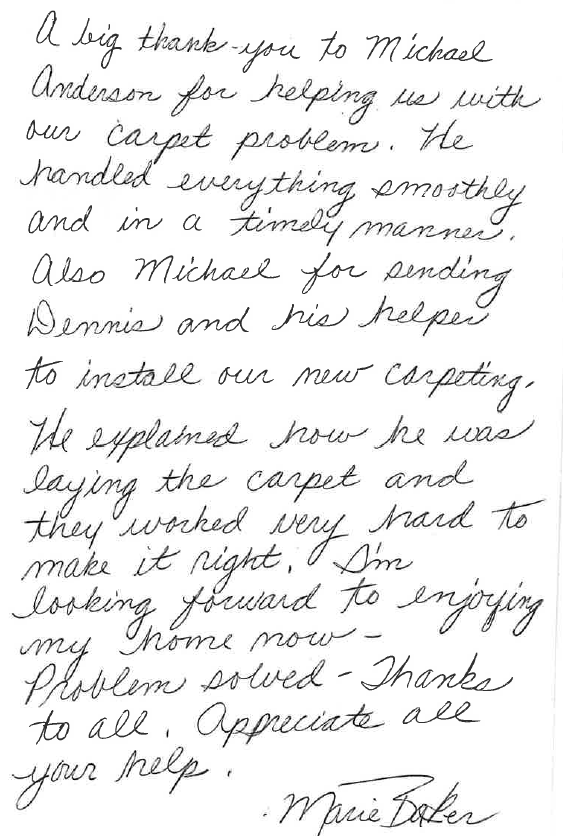 A big thank-you to Michael
Anderson for helping us with
our carpet problem. He
handled everything smoothly
and in a timely manner.
Also Michael for sending
Dennis and his helper
to install our new carpeting.
He explained how he was
laying the carpet and
they worked very hard to
make it right. I'm
looking forward to enjoying
my home now -
Problem solved - Thanks
to all. Appreciate all
your help.
Marie Baker